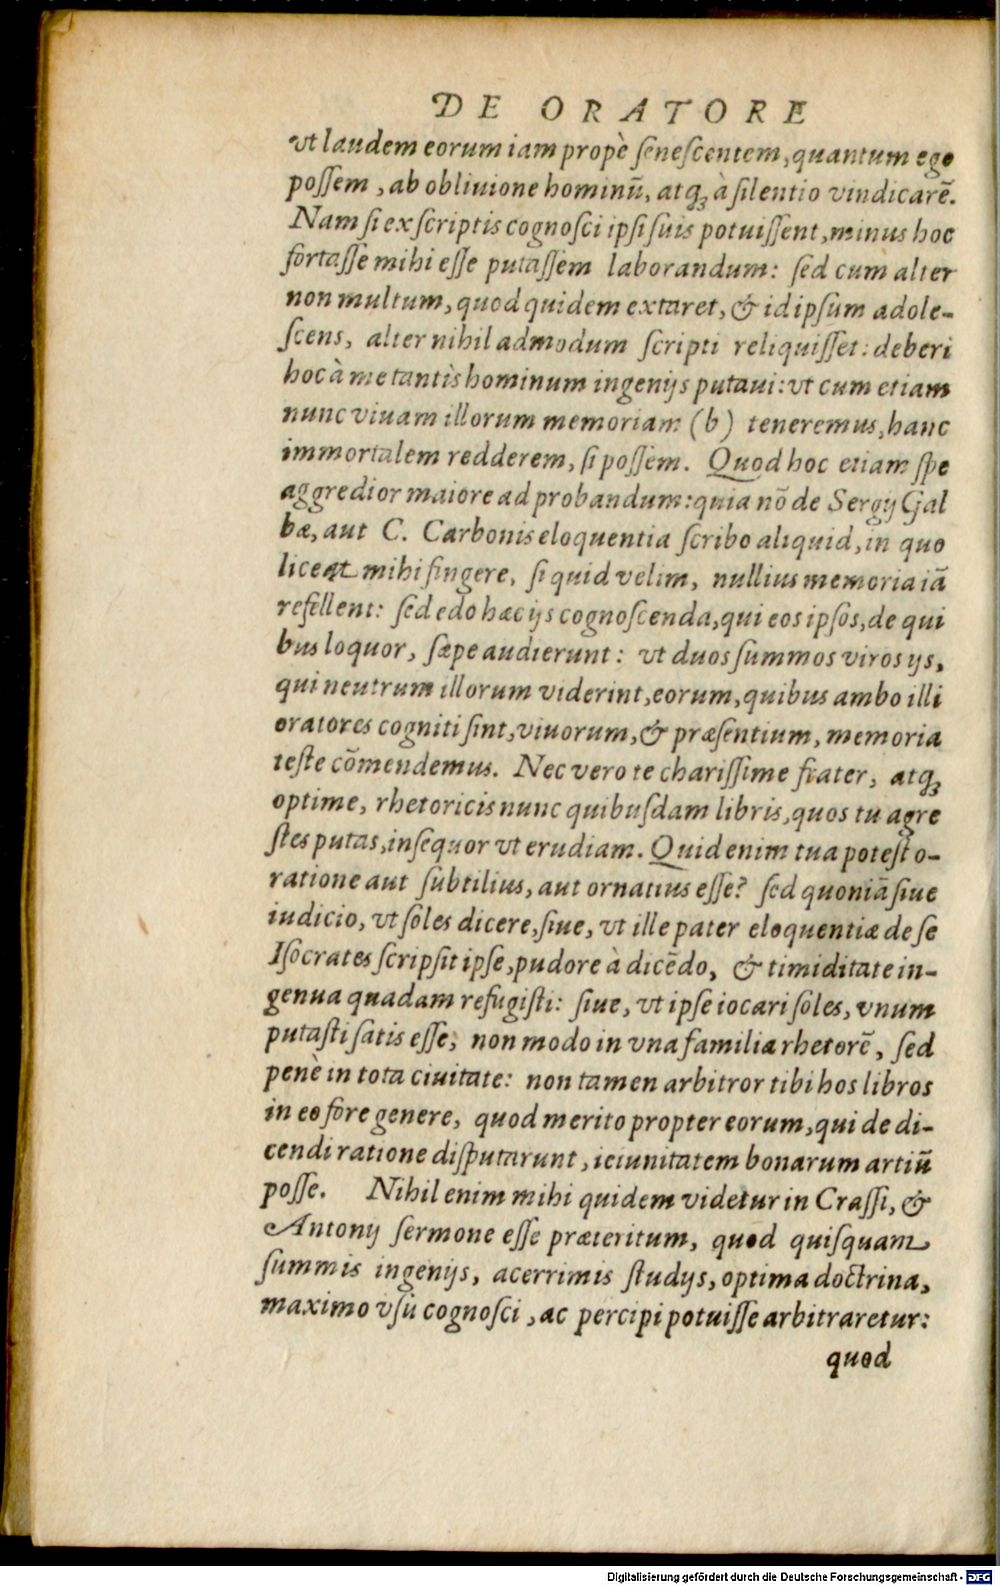 DE ORATORE
vt laudem eorum iam propè ſeneſcentem, quantum ego
poſſem, ab obliuione hominū, atq́ꝫ à ſilentio vindicarē.
Nam ſi ex ſcriptis cognoſci ipſi ſuis potuiſſent, minus hoc
fortaſſe mihi eſſe putaſſem laborandum: ſed cum alter
non multum, quod quidem extaret, & id ipſum adole-
ſcens, alter nihil admodum ſcripti reliquiſſet: deberi
hoc à me tantis hominum ingenijs putaui: vt cum etiam
nunc viuam illorum memoriam (b) teneremus, hanc
immortalem redderem, ſi poſſem. Quod hoc etiam ſpe
aggredior maiore ad probandum: quia nō de Sergij Gal
bæ, aut C. Carbonis eloquentia ſcribo aliquid, in quo
liceat mihi fingere, ſi quid velim, nullius memoria iā
refellent: ſed edo hæc ijs cognoſcenda, qui eos ipſos, de qui
bus loquor, ſæpe audierunt: vt duos ſummos viros ijs,
qui neutrum illorum viderint, eorum, quibus ambo illi
oratores cogniti ſint, viuorum, & præſentium, memoria
teſte cōmendemus. Nec vero te chariſſime frater, atq́ꝫ
optime, rhetoricis nunc quibuſdam libris, quos tu agre
ſtes putas, inſequor vt erudiam. Quid enim tua poteſt o-
ratione aut ſubtilius, aut ornatius eſſe? ſed quoniā ſiue
iudicio, vt ſoles dicere, ſiue, vt ille pater eloquentiæ de ſe
Iſocrates ſcripſit ipſe, pudore à dicēdo, & timiditate in-
genua quadam refugiſti: ſiue, vt ipſe iocari ſoles, vnum
putaſti ſatis eſſe, non modo in vna familia rhetorē, ſed
penè in tota ciuitate: non tamen arbitror tibi hos libros
in eo fore genere, quod merito propter eorum, qui de di-
cendi ratione diſputarunt, ieiunitatem bonarum artiū
poſſe. Nihil enim mihi quidem videtur in Craſſi, &
Antonij ſermone eſſe præteritum, quod quiſquam
ſummis ingenijs, acerrimis ſtudijs, optima doctrina,
maximo vſu cognoſci, ac percipi potuiſſe arbitraretur:
quod
Digitalisierung gefördert durch die Deutsche Forschungsgemeinschaft - DFG